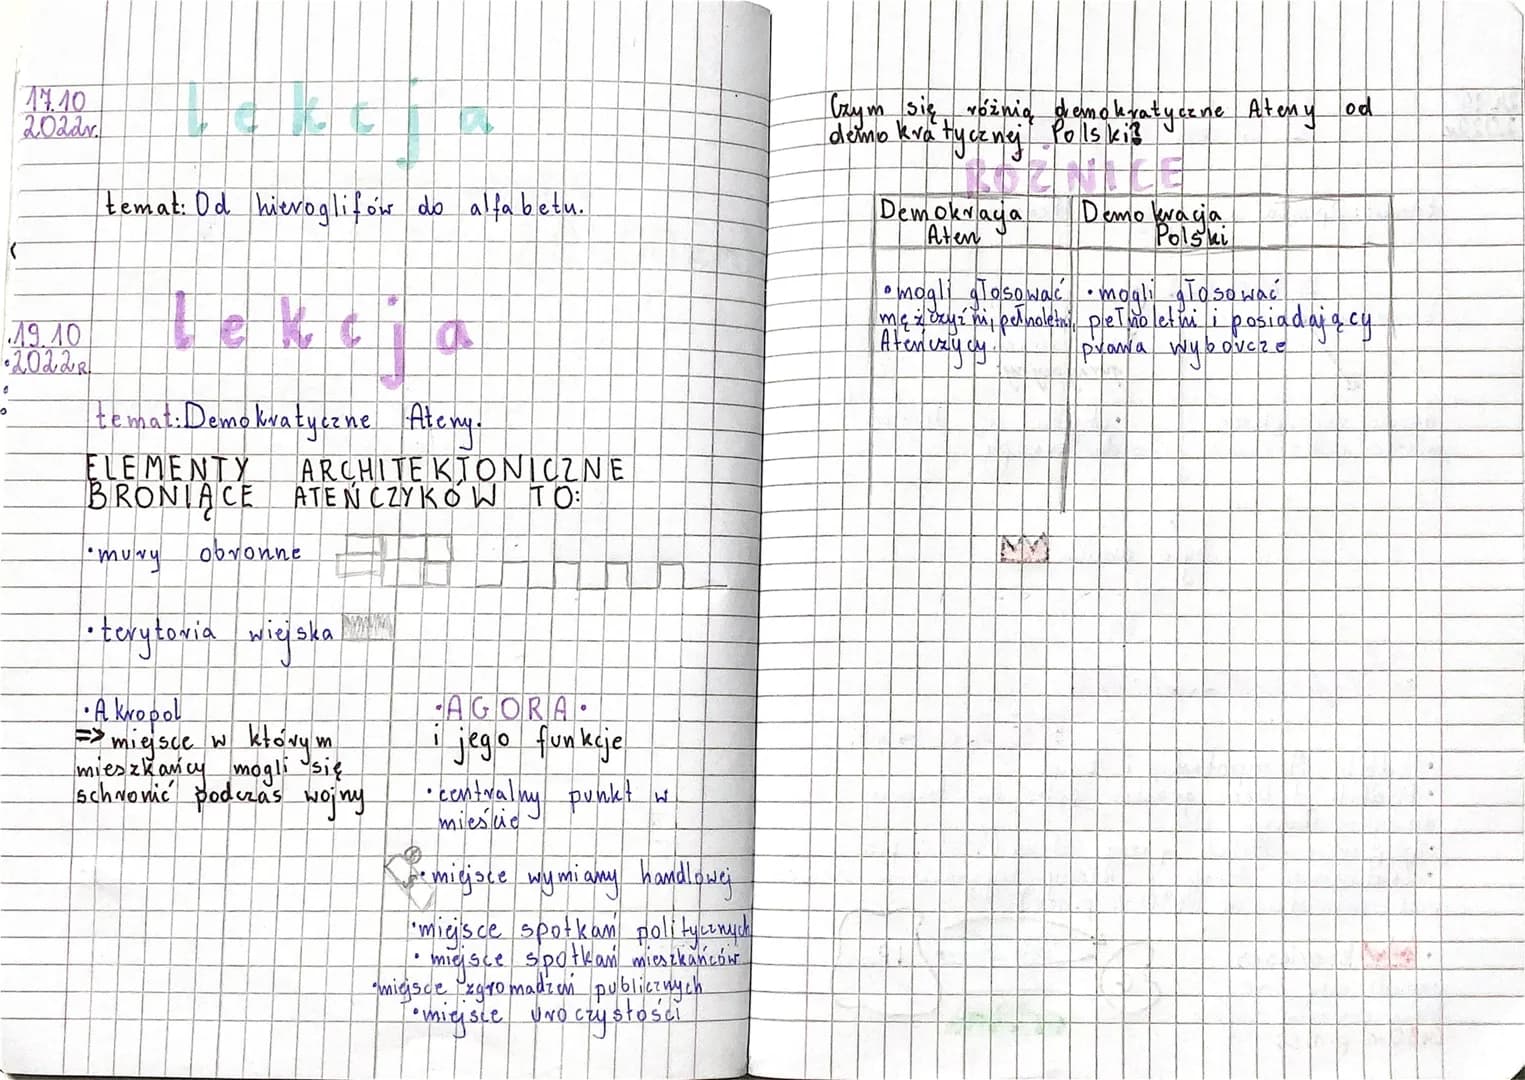 17.10
2022r.
lekcja
temat: Od hieroglifów do alfabetu.
19.10
2022R.
lekcja
temat: Demokratyczne Ateny.
ELEMENTY ARCHITEKTONICZNE
BRONIĄCE ATEŃCZYKÓW TO:
•mury obronne
•terytoria wiejska
•Akropol
=> miejsce w którym
mieszkańcy mogli się
schronić podczas wojny
•AGORA•
i jego funkcje
•centralny punkt w
mieście
•miejsce wymiany handlowej
•miejsce spotkań politycznych
•miejsce spotkań mieszkańców
•miejsce zgromadzeń publicznych
•miejsce uroczystości
Czym się różnią demokratyczne Ateny od
demokratycznej Polski?
RÓŻNICE
Demokracja
Aten
Demokracja
Polski
•mogli głosować
mężczyźni, pełnoletni,
Ateńczycy.
•mogli głosować
pełnoletni i posiadający
prawa wyborcze